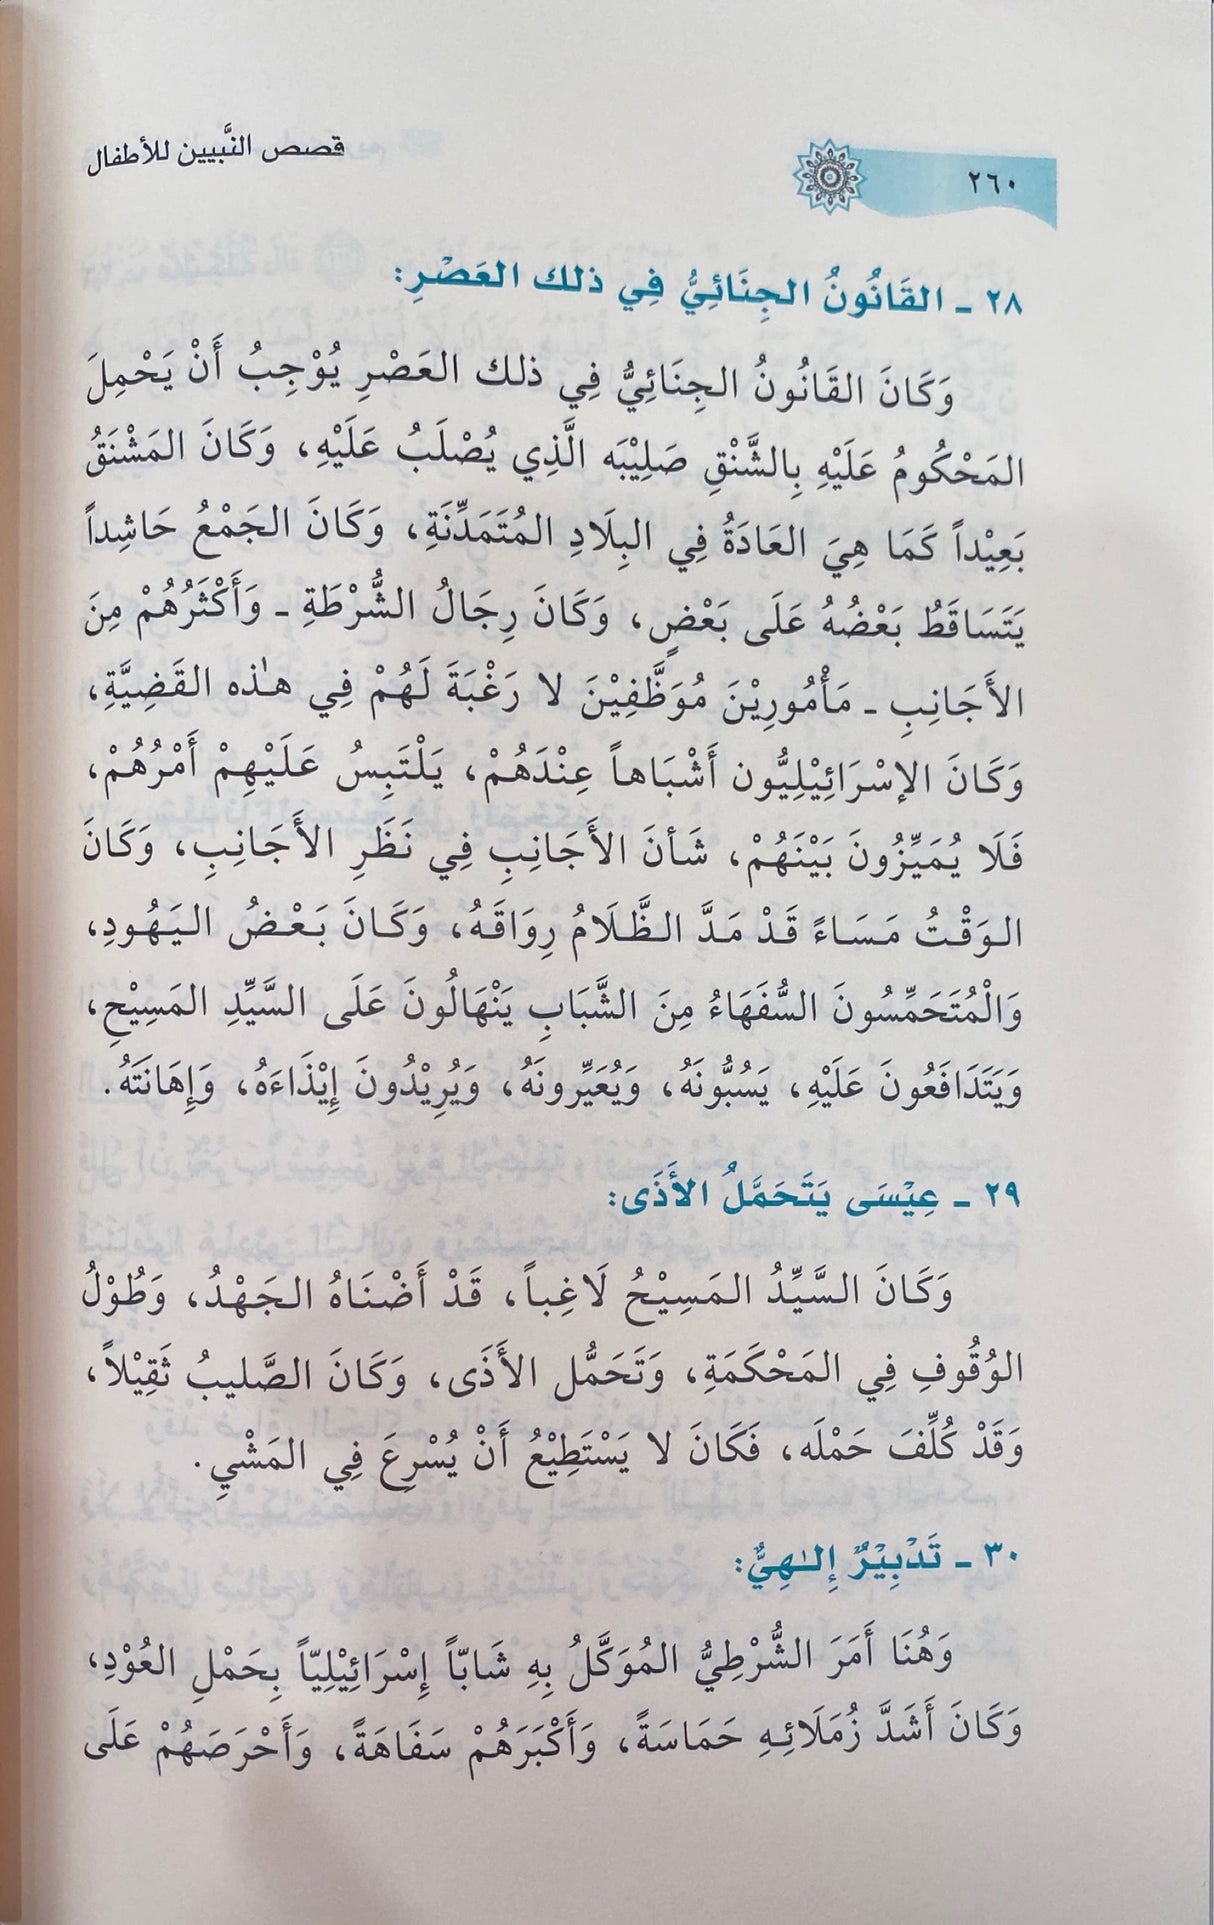 ٢٦٠
قصص النَّبيين للأطفال
٢٨ ـ القَانُونُ الجِنَائِيُّ فِي ذلك العَصْرِ:
وَكَانَ القَانُونُ الجِنَائِيُّ فِي ذلك العَصْرِ يُوْجِبُ أَنْ يَحْمِلَ
المَحْكُومُ عَلَيْهِ بِالشَّنْقِ صَلِيْبَه الَّذِي يُصْلَبُ عَلَيْهِ، وَكَانَ المَشْنَقُ
بَعِيْداً كَمَا هِيَ العَادَةُ فِي البِلَادِ المُتَمَدِّنَةِ، وَكَانَ الجَمْعُ حَاشِداً
يَتَسَاقَطُ بَعْضُهُ عَلَى بَعْضٍ، وَكَانَ رِجَالُ الشُّرْطَةِ ـ وَأَكْثَرُهُمْ مِنَ
الأَجَانِبِ ـ مَأْمُورِيْنَ مُوَظَّفِيْنَ لا رَغْبَةَ لَهُمْ فِي هٰذه القَضِيَّةِ،
وَكَانَ الإسْرَائِيْلِيُّون أَشْبَاهاً عِنْدَهُمْ، يَلْتَبِسُ عَلَيْهِمْ أَمْرُهُمْ،
فَلَا يُمَيِّزُونَ بَيْنَهُمْ، شَأنَ الأَجَانِبِ فِي نَظَرِ الأَجَانِبِ، وَكَانَ
الوَقْتُ مَسَاءً قَدْ مَدَّ الظَّلَامُ رِوَاقَهُ، وَكَانَ بَعْضُ اليَهُودِ،
وَالْمُتَحَمِّسُونَ السُّفَهَاءُ مِنَ الشَّبَابِ يَنْهَالُونَ عَلَى السَّيِّدِ المَسِيْحِ،
وَيَتَدَافَعُونَ عَلَيْهِ، يَسُبُّونَهُ، وَيُعَيِّرونَهُ، وَيُرِيْدُونَ إِيْذَاءَهُ، وَإِهَانَتَهُ.
٢٩ ـ عِيْسَى يَتَحَمَّلُ الأَذَى:
وَكَانَ السَّيِّدُ المَسِيْحُ لَاغِباً، قَدْ أَضْنَاهُ الجَهْدُ، وَطُوْلُ
الوُقُوفِ فِي المَحْكَمَةِ، وَتَحَمُّل الأَذَى، وَكَانَ الصَّليبُ ثَقِيْلاً،
وَقَدْ كُلِّفَ حَمْلَه، فَكَانَ لا يَسْتَطِيْعُ أَنْ يُسْرِعَ فِي المَشْيِ.
٣٠ ـ تَدْبِيْرٌ إِلٰهِيٌّ:
وَهُنَا أَمَرَ الشُّرْطِيُّ المُوَكَّلُ بِهِ شَابّاً إِسْرَائِيْلِيّاً بِحَمْلِ العُوْدِ،
وَكَانَ أَشَدَّ زُمَلَائِهِ حَمَاسَةً، وَأَكْبَرَهُمْ سَفَاهَةً، وَأَحْرَصَهُمْ عَلَى